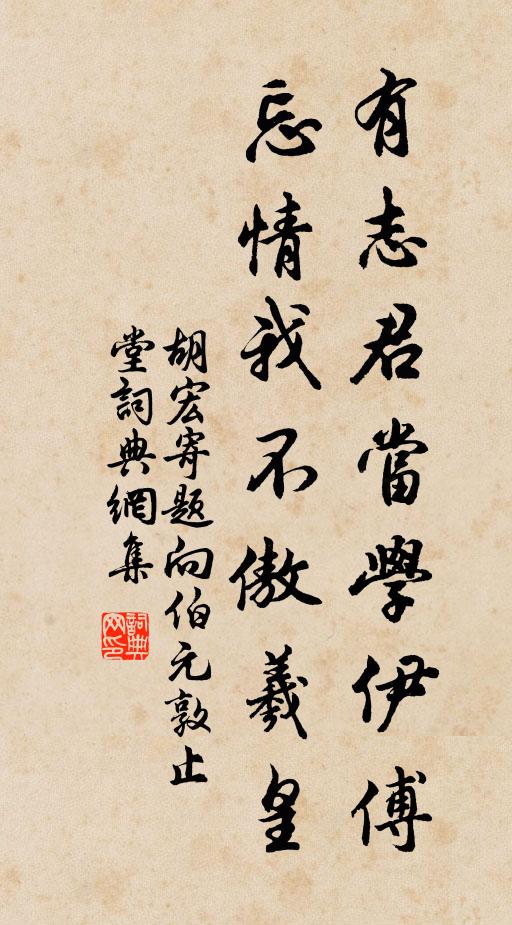 有志君當學伊傅
忘情我不傲羲皇
胡宏寄題向伯元敦止
堂詞典網集
詞典网印